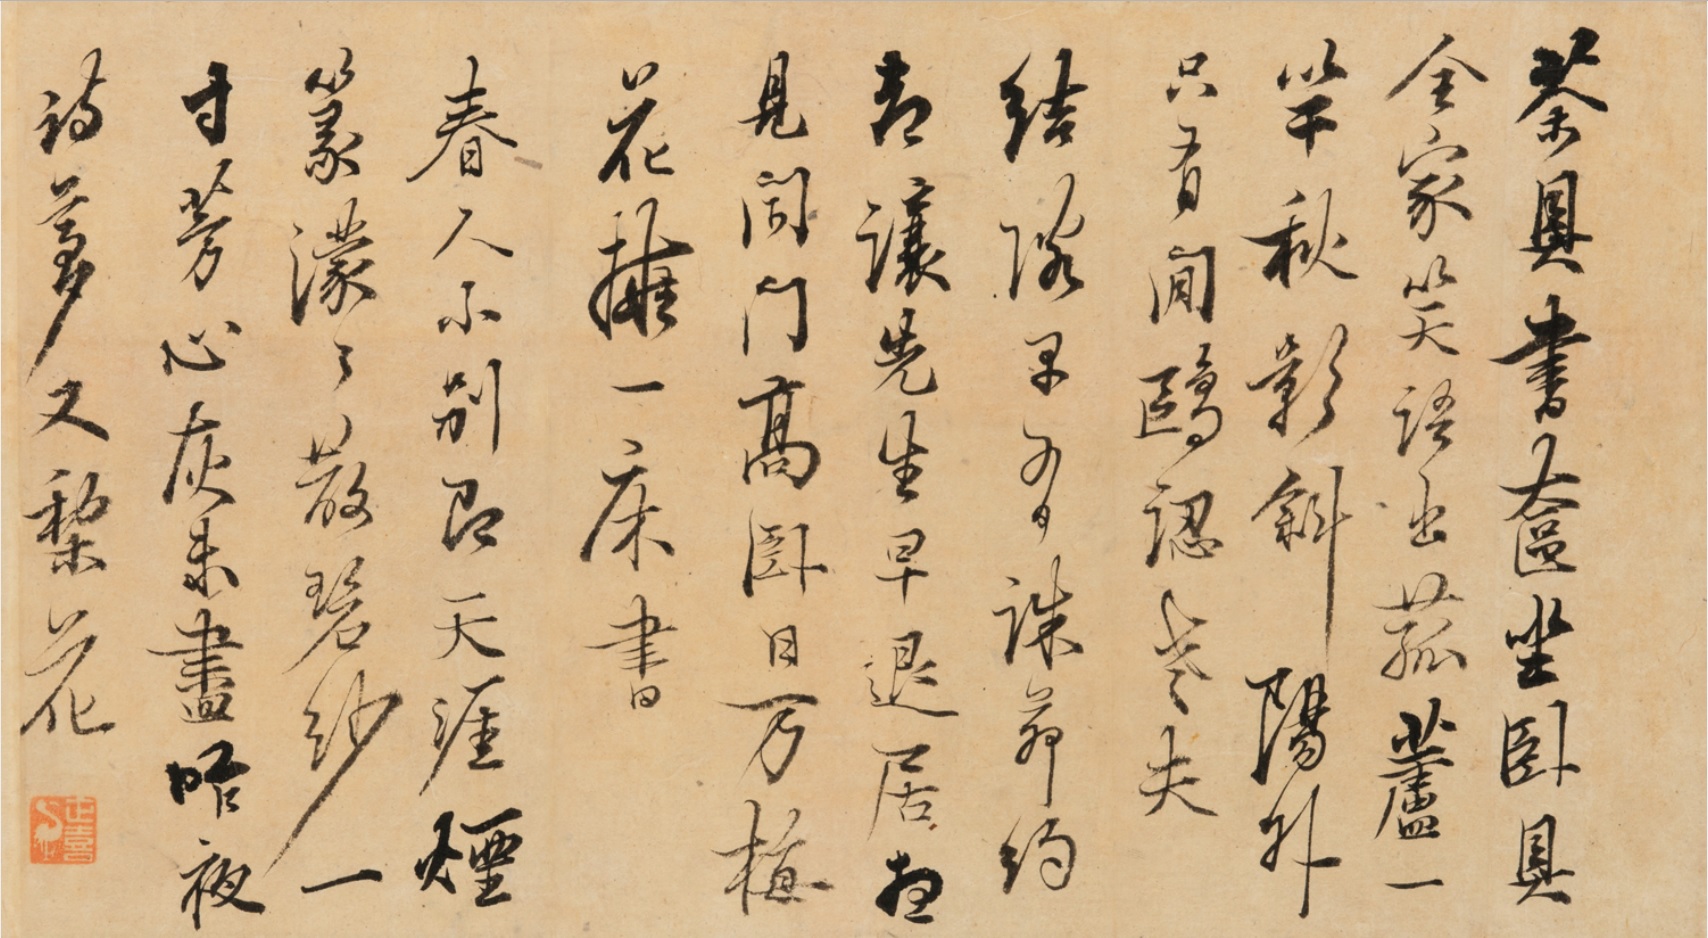 茶具書奩坐臥具
全家笑語出菰蘆一
竿秋影斜陽外
只有閒鷗認老夫
結隣早有誅茆約
却讓先生早退居想
見閉門高臥日萬梅
花擁一床書
春人小別即天涯煙
篆濛々散碧紗一
寸芳心灰未盡昨夜
詩夢又梨花